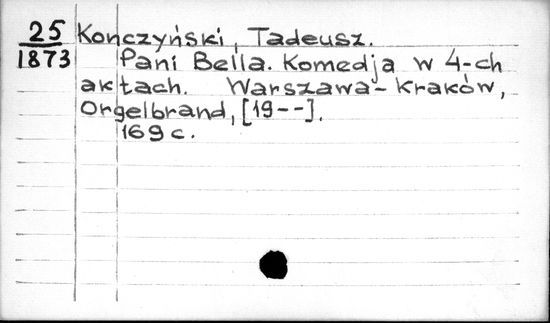 25 Konczyński, Tadeusz.
1873 Pani Bella. Komedja w 4-ch
aktach. Warszawa-Kraków,
Orgelbrand, [19--].
169 c.